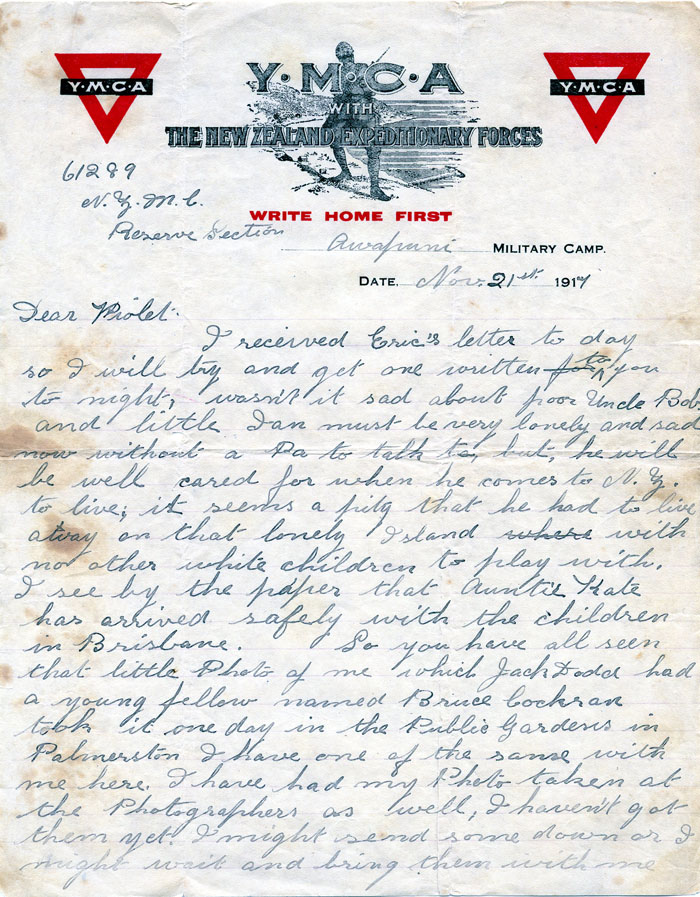 Y·M·C·A
Y·M·C·A
Y·M·C·A
WITH
THE NEW ZEALAND EXPEDITIONARY FORCES
WRITE HOME FIRST
61289
N.Z.M.C.
Reserve Section
Awapuni MILITARY CAMP.
DATE. Nov. 21st. 1917
Dear Violet.
I received Eric's letter to day
so I will try and get one written for to you
to night; wasn't it sad about poor Uncle Bob,
and little Ian must be very lonely and sad
now without a Pa to talk to, but, he will
be well cared for when he comes to N.Z.
to live; it seems a pity that he had to live
away on that lonely Island where with
no other white children to play with.
I see by the paper that Auntie Kate
has arrived safely with the children
in Brisbane. So you have all seen
that little Photo of me which Jack Dodd had
a young fellow named Bruce Cockran
took it one day in the Public Gardens in
Palmerston I have one of the same with
me here. I have had my Photo taken at
the Photographers as well, I haven't got
them yet. I might send some down or I
might wait and bring them with me